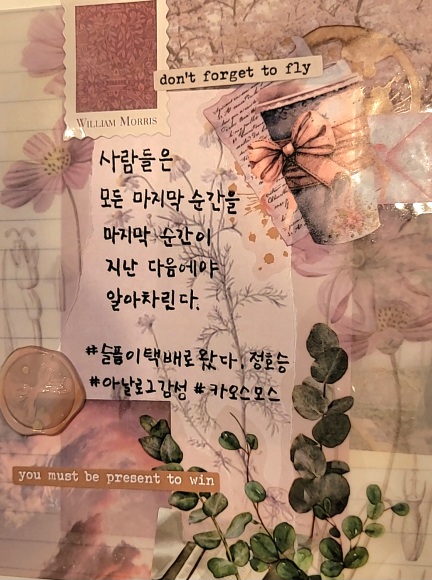 WILLIAM MORRIS
don't forget to fly
사람들은
모든 마지막 순간을
마지막 순간이
지난 다음에야
알아차린다.
#슬픔이택배로왔다, 정호승
#아날로그감성 #카오스모스
you must be present to win